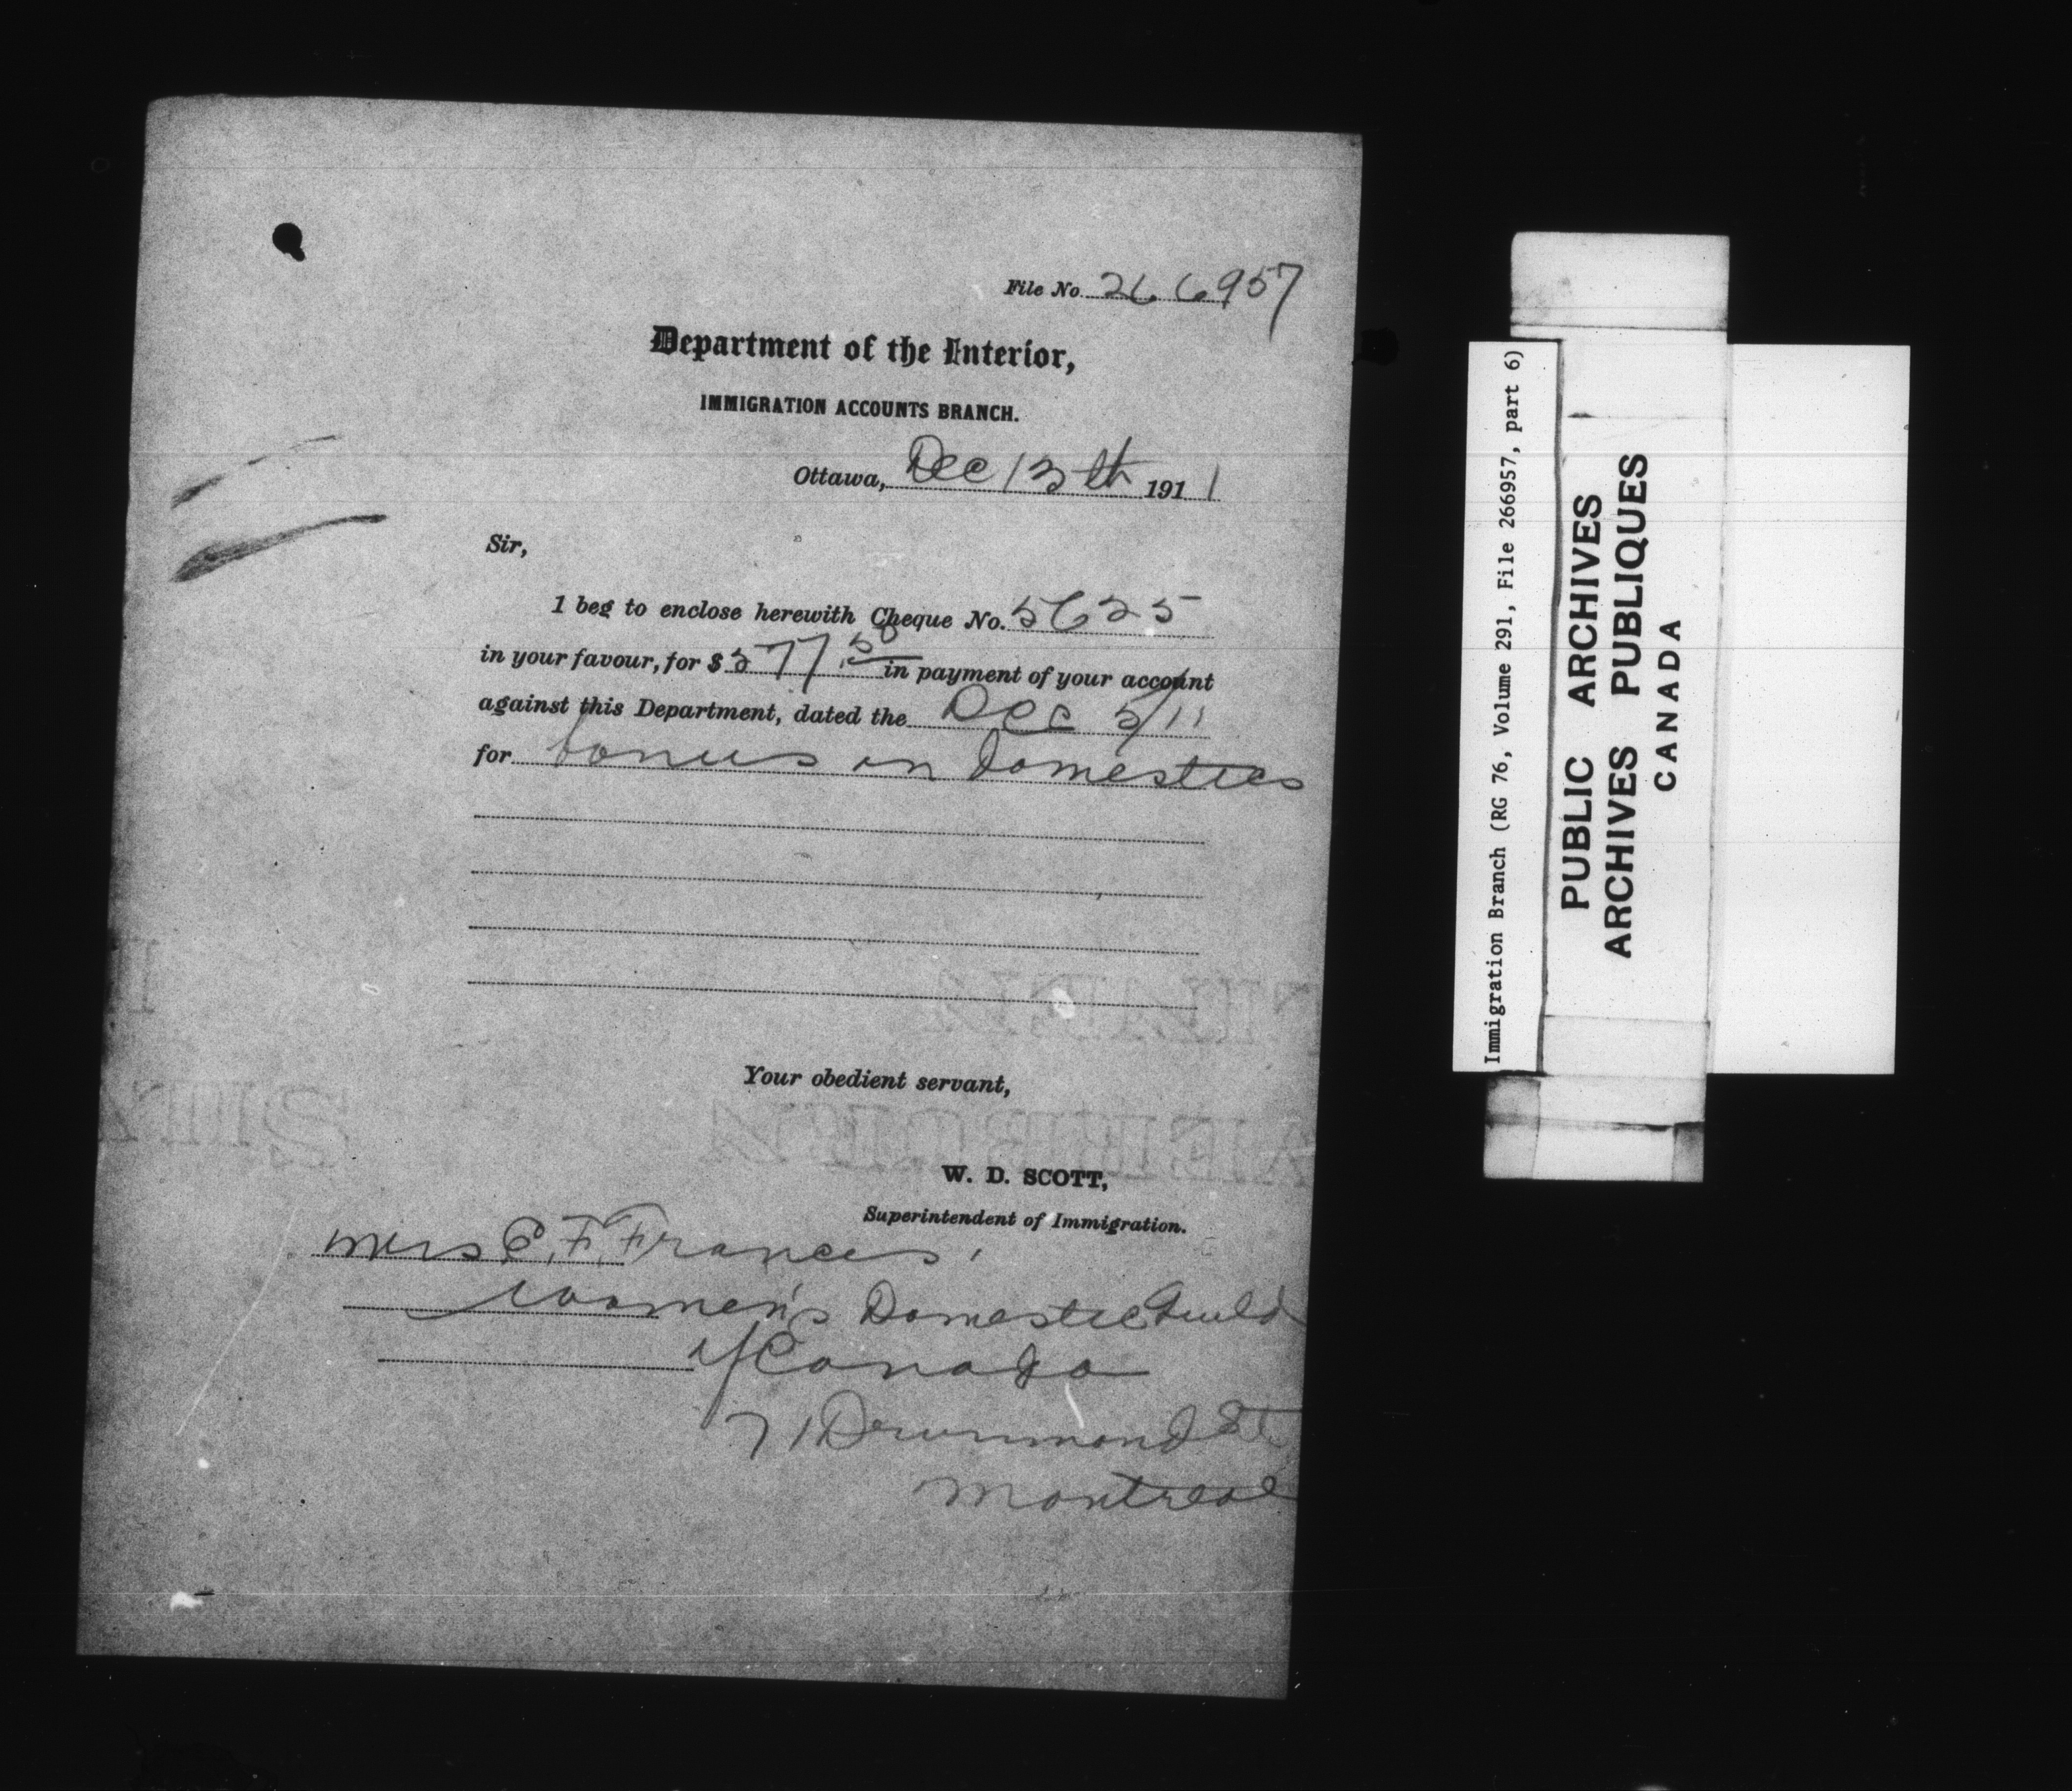 File No. 266957
Department of the Interior,
IMMIGRATION ACCOUNTS BRANCH.
Ottawa, Dec 13th 1911
Sir,
I beg to enclose herewith Cheque No.
in your favour, for $ in payment of your account
against this Department, dated the Dec 5/11
for bonus on domestics
Your obedient servant,
W. D. SCOTT,
Superintendent of Immigration.
Mrs E. F. Francis,
Women's Domestic Guild
of Canada
71 Drummond St.
Montreal
Immigration Branch (RG 76, Volume 291, File 266957, part 6)
PUBLIC ARCHIVES
ARCHIVES PUBLIQUES
CANADA